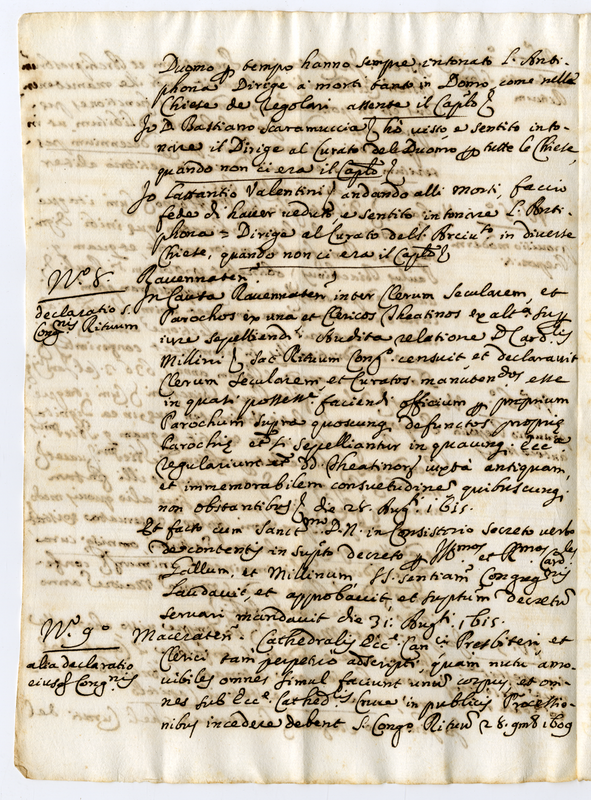 Duomo p tempo hanno sempre intonato l'Anti-
phona Dirige a morti tanto in Domo come nelle
Chiese de Regolari, assente il Caplo
Io D. Bastiano Scaramuccia hò visto e sentito into-
nare il Dirige al Curato del Duomo p tutte le Chiese,
quando non ci era il Caplo
Io Lattantio Valentini andando alli morti, faccio
fede di haver veduto, e sentito intonare l'Anti-
phona = Dirige al Curato dell in diverse
Chiese, quando non ci era il Caplo
N.º 8. Ravennaten.
declaratio S.
Congnis Rituum
In Causa Ravennaten inter Clerum Secularem, et
Parochos ex una et Clericos Theatinos ex alta sup
iure sepelliendi. Audita relatione D. Cardlis
Millini Sac. Rituum Congº censuit et declaravit
Clerum Secularem et Curatos manutendos esse
in quasi possess. faciendi officium p proprium
Parochum supra quoscunq defunctos propriæ
Parochiæ etsi sepelliantur in quacunq Ecca
Regularium et DD. Theatinor iuxta antiquam,
et immemorabilem consuetudinē quibuscunq
non obstantibus die 28. Augti 1615.
Et facto cum Sanctmo D. N. in Consistorio Secreto verbo
de contentis in supto decreto p Illmos et Rmos Cardles
Gallum, et Millinum, SS. sentiam Congregnis
Laudavit, et approbavit et suptum decretū
servari mandavit die 31. Augti 1615.
N.º 9º Maceraten. Cathedralis Eccæ Canci Presbiteri et
alia declaratio
eiusd Congnis
Clerici tam perpetio adscripti quam nutu amo-
vibiles omnes simul faciunt unū corpus, et om-
nes sub Eccæ Cathedlis Cruce in publicis Processio-
nibus incedere debent S. Congº Rituū 28. gmb 1609